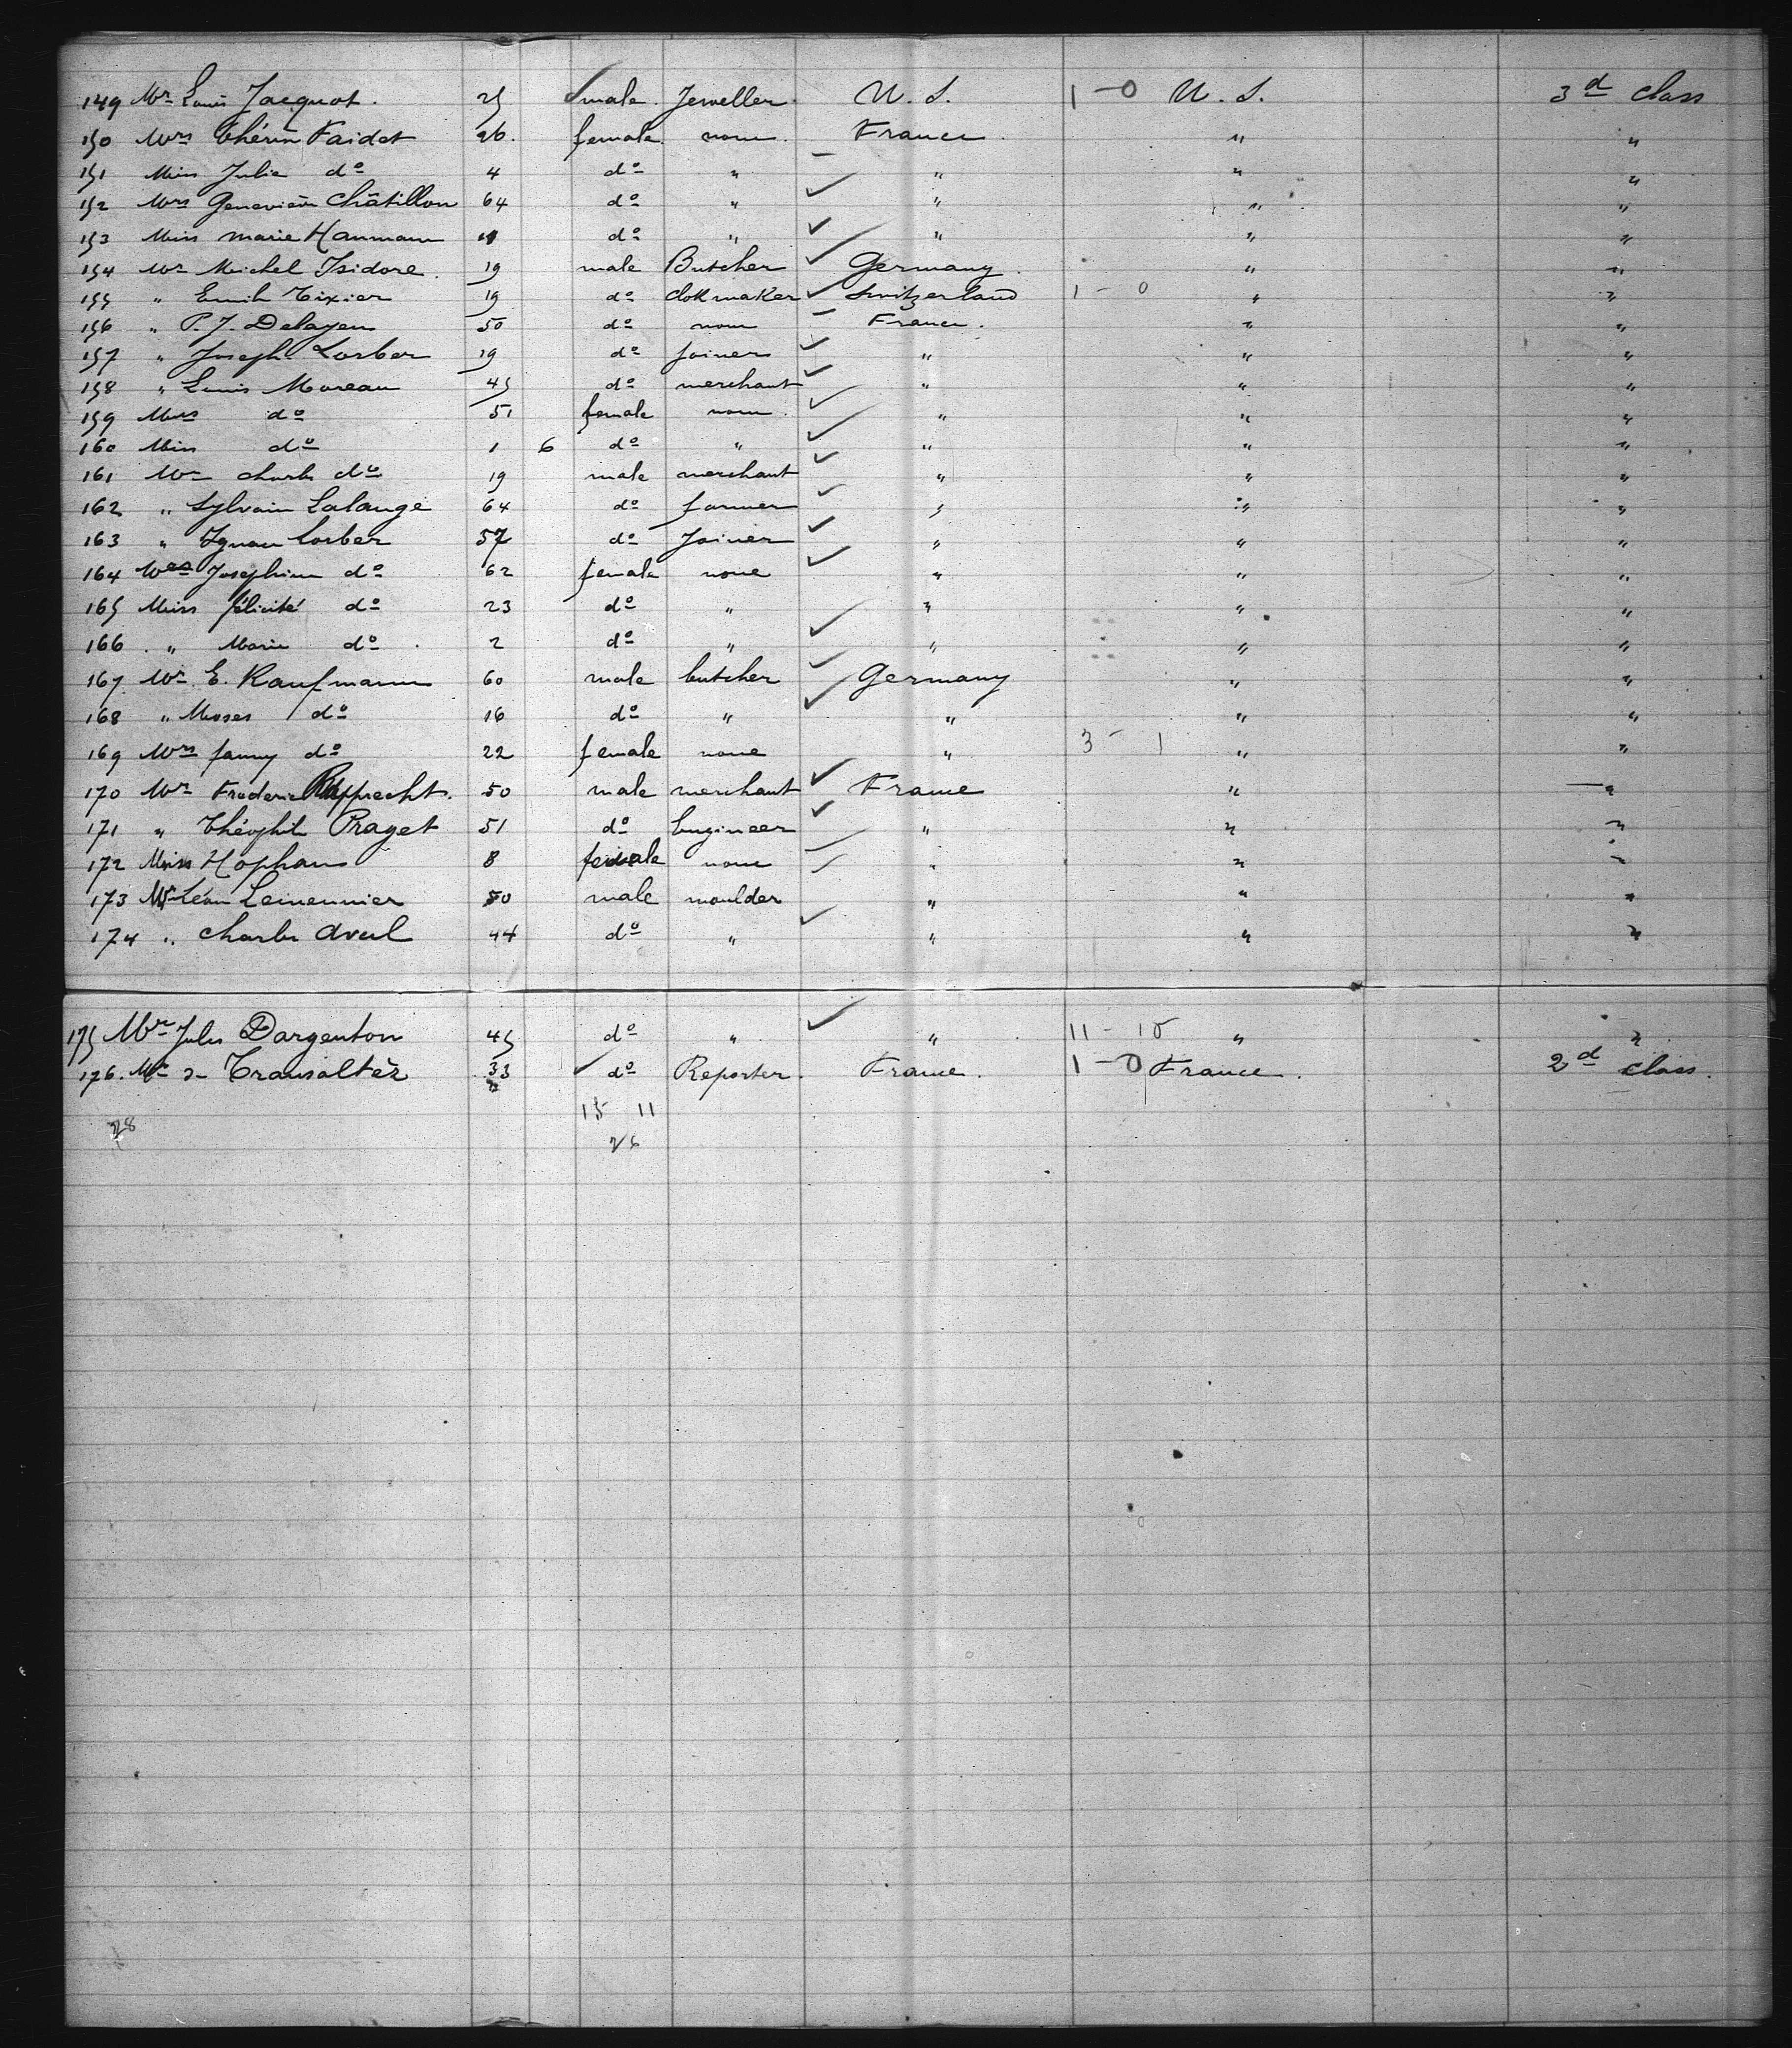 149 Mr Louis Jacquot. 25 male. Jeweller. U. S. 1 - 0 U. S. 3d class
150 Mrs Faidot 26. female. none. France. " "
151 Miss Julie do 4 do " " " "
152 Mrs Geneviève Châtillon 64 do " " " "
153 Miss Marie Hanmann do " " " "
154 Mr Michel Isidore. 19 male Butcher Germany. " "
155 " Emile Tixier 19 do clokmaker Switzerland 1 - 0 " "
156 " P. J. Delayen 50 do none France. " "
157 " Joseph Lorber 19 do joiner " " "
158 " Louis Moreau 45 do merchant " " "
159 Mrs do 51 female none. " " "
160 Miss do 1 6 do " " " "
161 Mr Charles do 19 male merchant " " "
162 " Sylvain Lalange 64 do farmer " " "
163 " Ignace Lorber 57 do Joiner " " "
164 Mrs Josephine do 62 female none " " "
165 Miss félicité do 23 do " " " "
166 . " Marie do . 2 do " " " "
167 Mr E. Kaufmann 60 male butcher Germany " "
168 " Moses do 16 do " " " "
169 Mrs fanny do 22 female none " 3 - 1 " "
170 Mr Frederic Rupprecht. 50 male merchant France " "
171 " Théophile Praget 51 do Engineer " " "
172 Miss Hophans 8 female none " " "
173 Mr Léon Lemeunnier 50 male moulder " " "
174 " Charles Aveil 44 do " " " "
175 Mr Jules Dargenton 45 do " " 11 - 15 " "
176. Mr Transaltèz 33 do Reporter. France. 1 - 0 France. 2d class.
28 15 11
26